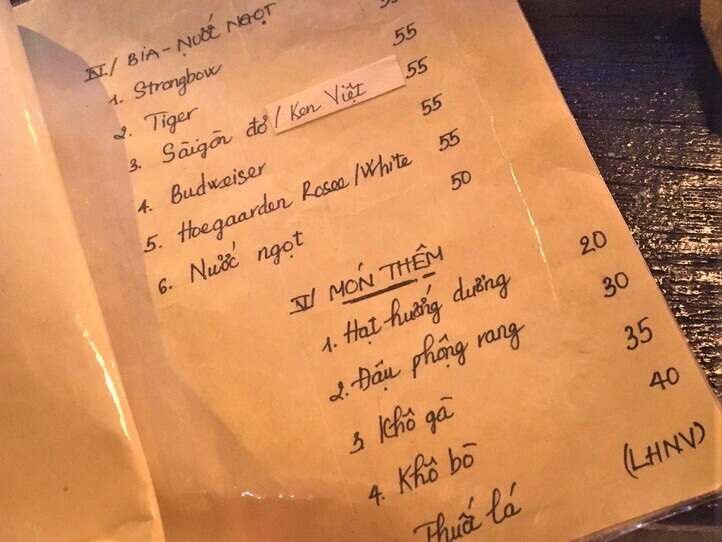 IV/ BIA - NƯỚC NGỌT
1. Strongbow 55
2. Tiger 55
3. Sài gòn đỏ / Ken Việt 55
4. Budweiser 55
5. Hoegaarden Rosee/White 55
6. Nước ngọt 50
V/ MÓN THÊM
1. Hạt hướng dương 20
2. Đậu phộng rang 30
3. Khô gà 35
4. Khô bò 40
Thuốc lá (LHNV)